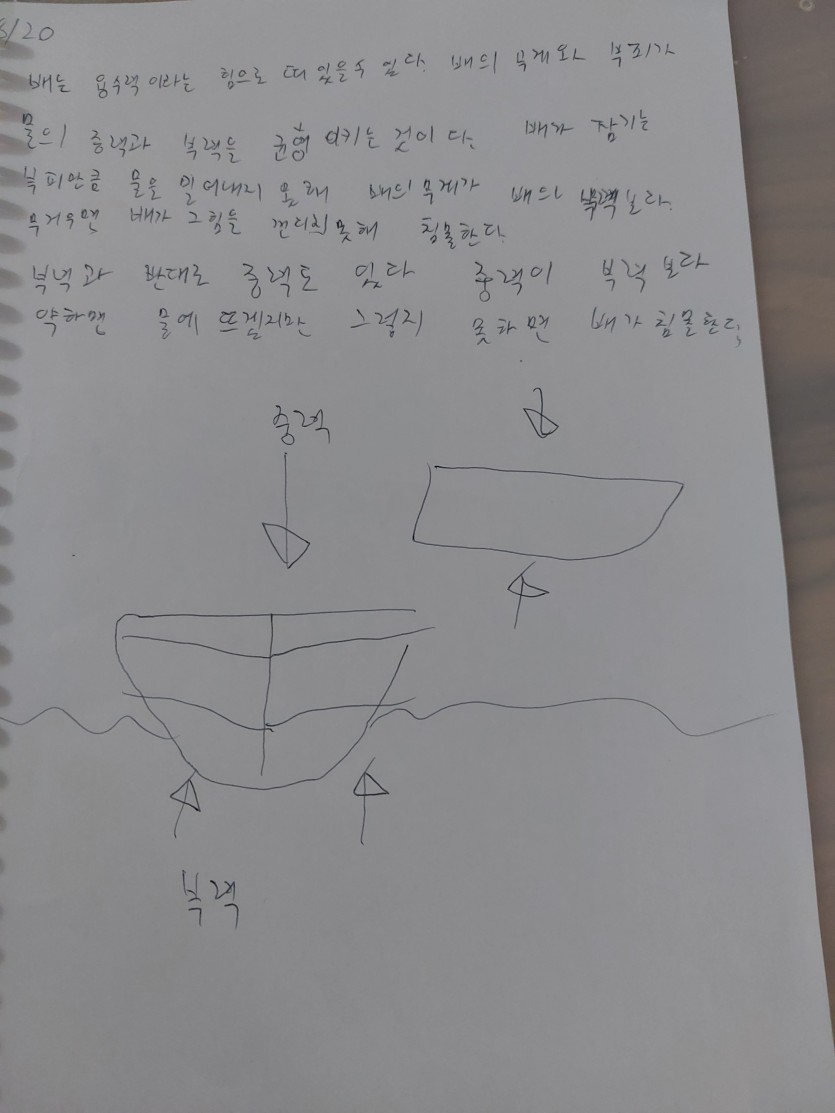 8/20
배는 용수력이라는 힘으로 떠 있을수 있다. 배의 무게와 부피가
물의 중력과 부력을 균형 시키는 것이다. 배가 잠기는
부피만큼 물을 밀어내지 못해 배의 무게가 배의 부력보다.
무거우면 배가 그힘을 견디지못해 침몰한다.
부력과 반대로 중력도 있다 중력이 부력보다
약하면 물에 뜨겠지만 그렇지 못하면 배가 침몰한다,
중력
부력